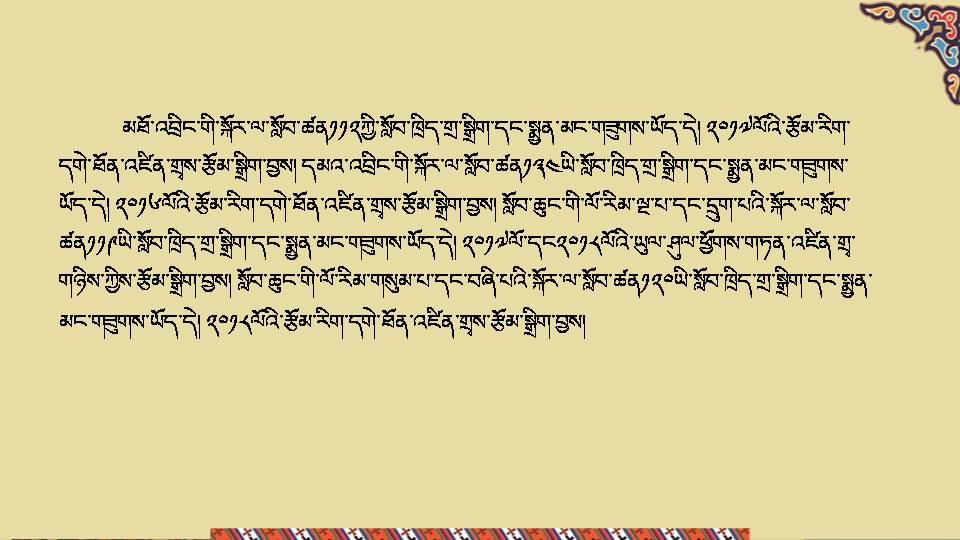 མཐོ་འབྲིང་གི་སྐོར་ལ་སློབ་ཚན༡༡༢ཀྱི་སློབ་ཁྲིད་གྲ་སྒྲིག་དང་སྨྱན་མང་གཟུགས་ཡོད་དེ། ༢༠༡༧ལོའི་རྩོམ་རིག་
དགེ་ཐོན་འཛིན་གྲྭས་རྩོམ་སྒྲིག་བྱས། དམའ་འབྲིང་གི་སྐོར་ལ་སློབ་ཚན༡༣༤ཡི་སློབ་ཁྲིད་གྲ་སྒྲིག་དང་སྨྱན་མང་གཟུགས་
ཡོད་དེ། ༢༠༡༦ལོའི་རྩོམ་རིག་དགེ་ཐོན་འཛིན་གྲྭས་རྩོམ་སྒྲིག་བྱས། སློབ་ཆུང་གི་ལོ་རིམ་ལྔ་པ་དང་དྲུག་པའི་སྐོར་ལ་སློབ་
ཚན༡༡༩ཡི་སློབ་ཁྲིད་གྲ་སྒྲིག་དང་སྨྱན་མང་གཟུགས་ཡོད་དེ། ༢༠༡༧ལོ་དང༢༠༡༨ལོའི་ཡུལ་ཤུལ་ཕྱོགས་གཏན་འཛིན་གྲྭ་
གཉིས་ཀྱིས་རྩོམ་སྒྲིག་བྱས། སློབ་ཆུང་གི་ལོ་རིམ་གསུམ་པ་དང་བཞི་པའི་སྐོར་ལ་སློབ་ཚན༡༢༠ཡི་སློབ་ཁྲིད་གྲ་སྒྲིག་དང་སྨྱན་
མང་གཟུགས་ཡོད་དེ། ༢༠༡༨ལོའི་རྩོམ་རིག་དགེ་ཐོན་འཛིན་གྲྭས་རྩོམ་སྒྲིག་བྱས།